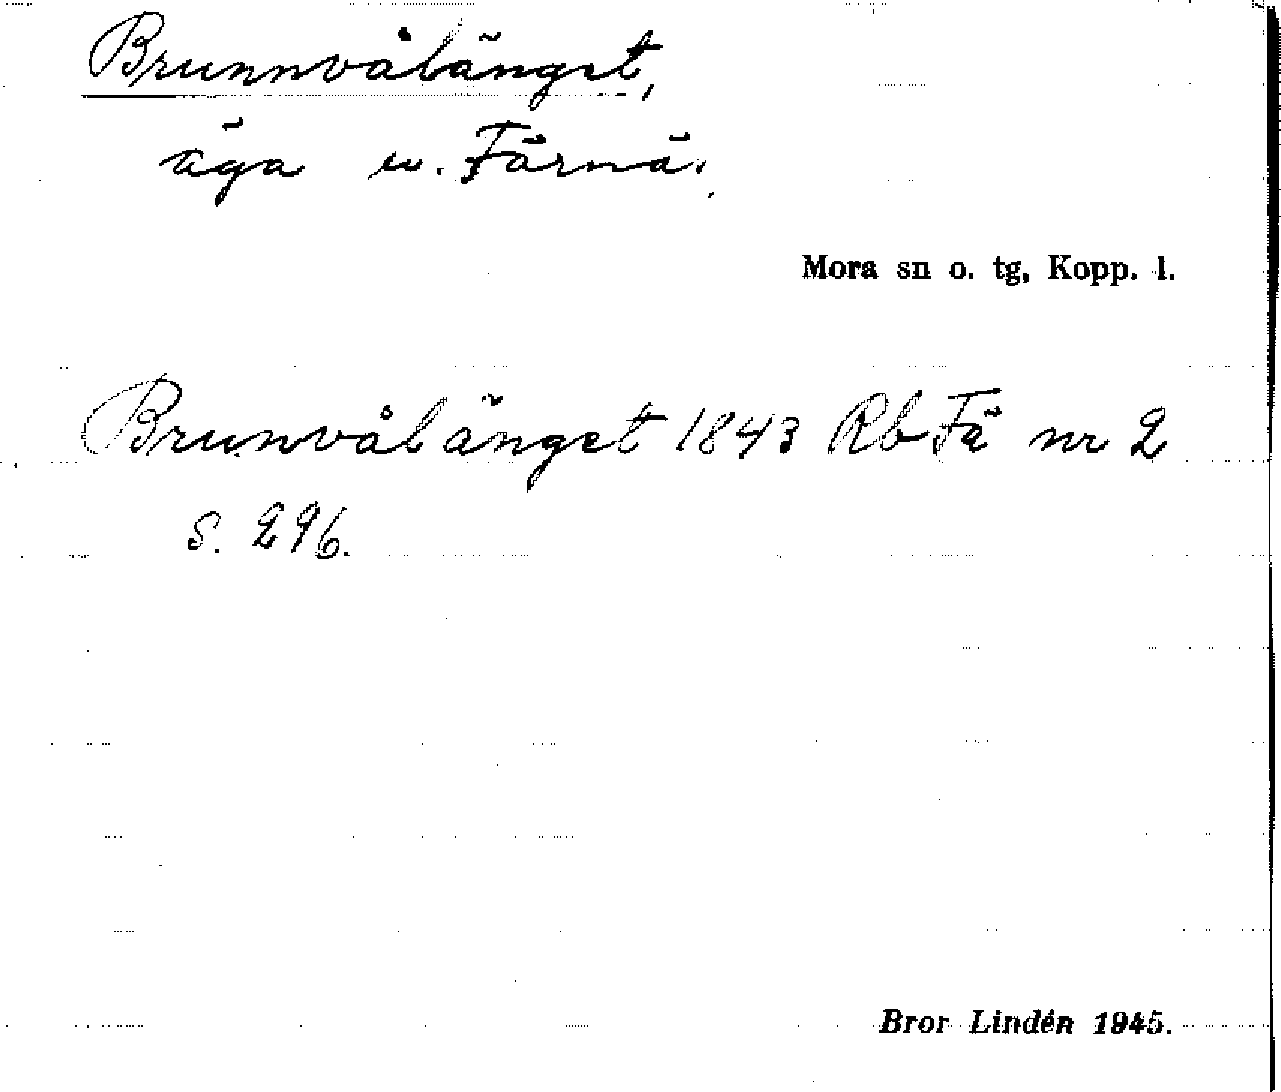 Brunnvålänget,
äga u. Färnäs.
Mora sn o. tg, Kopp. l.
Brunvålänget 1843 Rb Fä nr 2
s. 296.
Bror Lindén 1945.